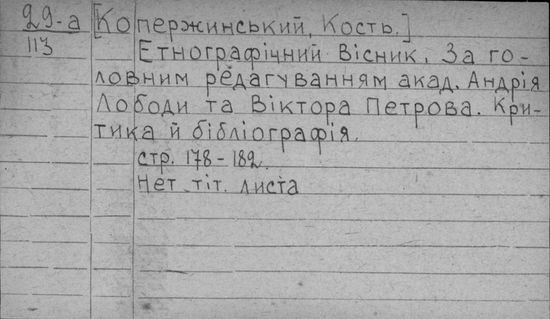 29-а [Копержинський, Кость.]
113
Етнографічний Вісник. За го-
ловним редагуванням акад. Андрія
Лободи та Віктора Петрова. Кри-
тика й бібліографія.
стр. 178-182.
Нет тіт. листа